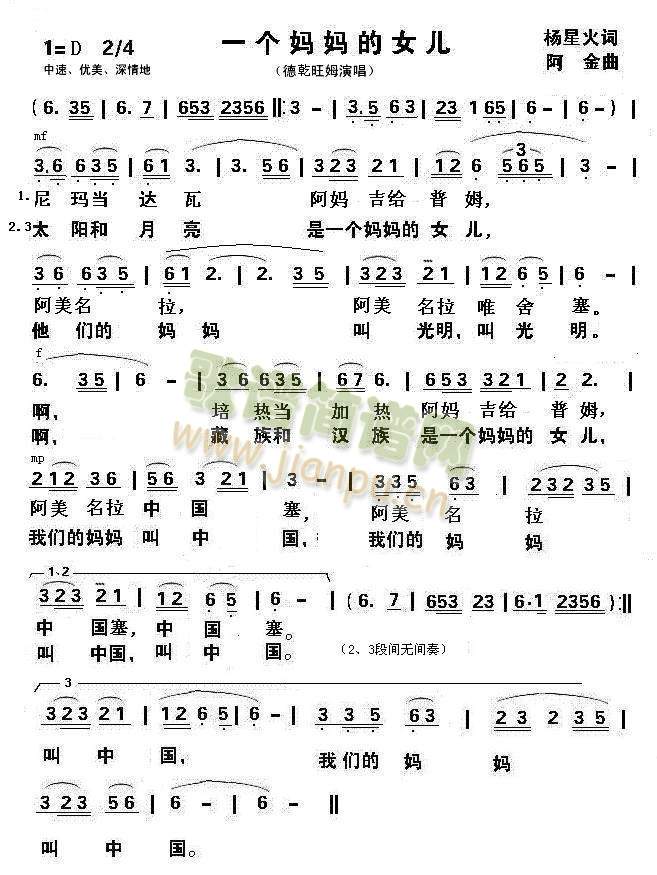 一个妈妈的女儿
1=D 2/4
杨星火词
中速、优美、深情地
（德乾旺姆演唱）
阿 金曲
(6. 35 | 6. 7 | 653 2356 ‖: 3 - | 3.5 63 | 23 1 65 | 6 - | 6 - |
mf
3.6 635 | 61 3. | 3. 56 | 323 21 | 12 6 | 565 | 3 - |
3
1. 尼 玛当 达 瓦 阿妈 吉给 普 姆,
2.3 太 阳和 月 亮 是一个妈妈的 女 儿,
36 635 | 61 2. | 2. 35 | 323 21 | 126 5 | 6 - |
阿美名 拉, 阿美 名拉 唯 舍 塞。
他 们的 妈 妈 叫 光明,叫 光 明。
f
6. 35 | 6 - | 36 635 | 67 6. | 653 321 | 22 2. |
啊, 培 热当 加 热 阿妈 吉给 普 姆,
啊, 藏 族和 汉 族 是一个妈妈的 女 儿,
歌谱简谱网
www.jianpu.cn
mp
212 36 | 56 3 | 3 - | 335 63 | 232 35 |
阿美 名拉 中 国 塞, 阿美 名 拉
我们的妈妈 叫 中 国, 我们的 妈 妈
1、2
323 21 | 12 6 5 | 6 - | (6. 7 | 653 23 | 6·1 2356) :‖
中 国塞,中 国 塞。
叫 中国,叫 中 国。
（2、3段间无间奏）
3
323 21 | 126 5 | 6 - | 335 63 | 23 2 35 |
叫 中 国, 我们的 妈 妈
323 56 | 6 - | 6 - ‖
叫 中 国。